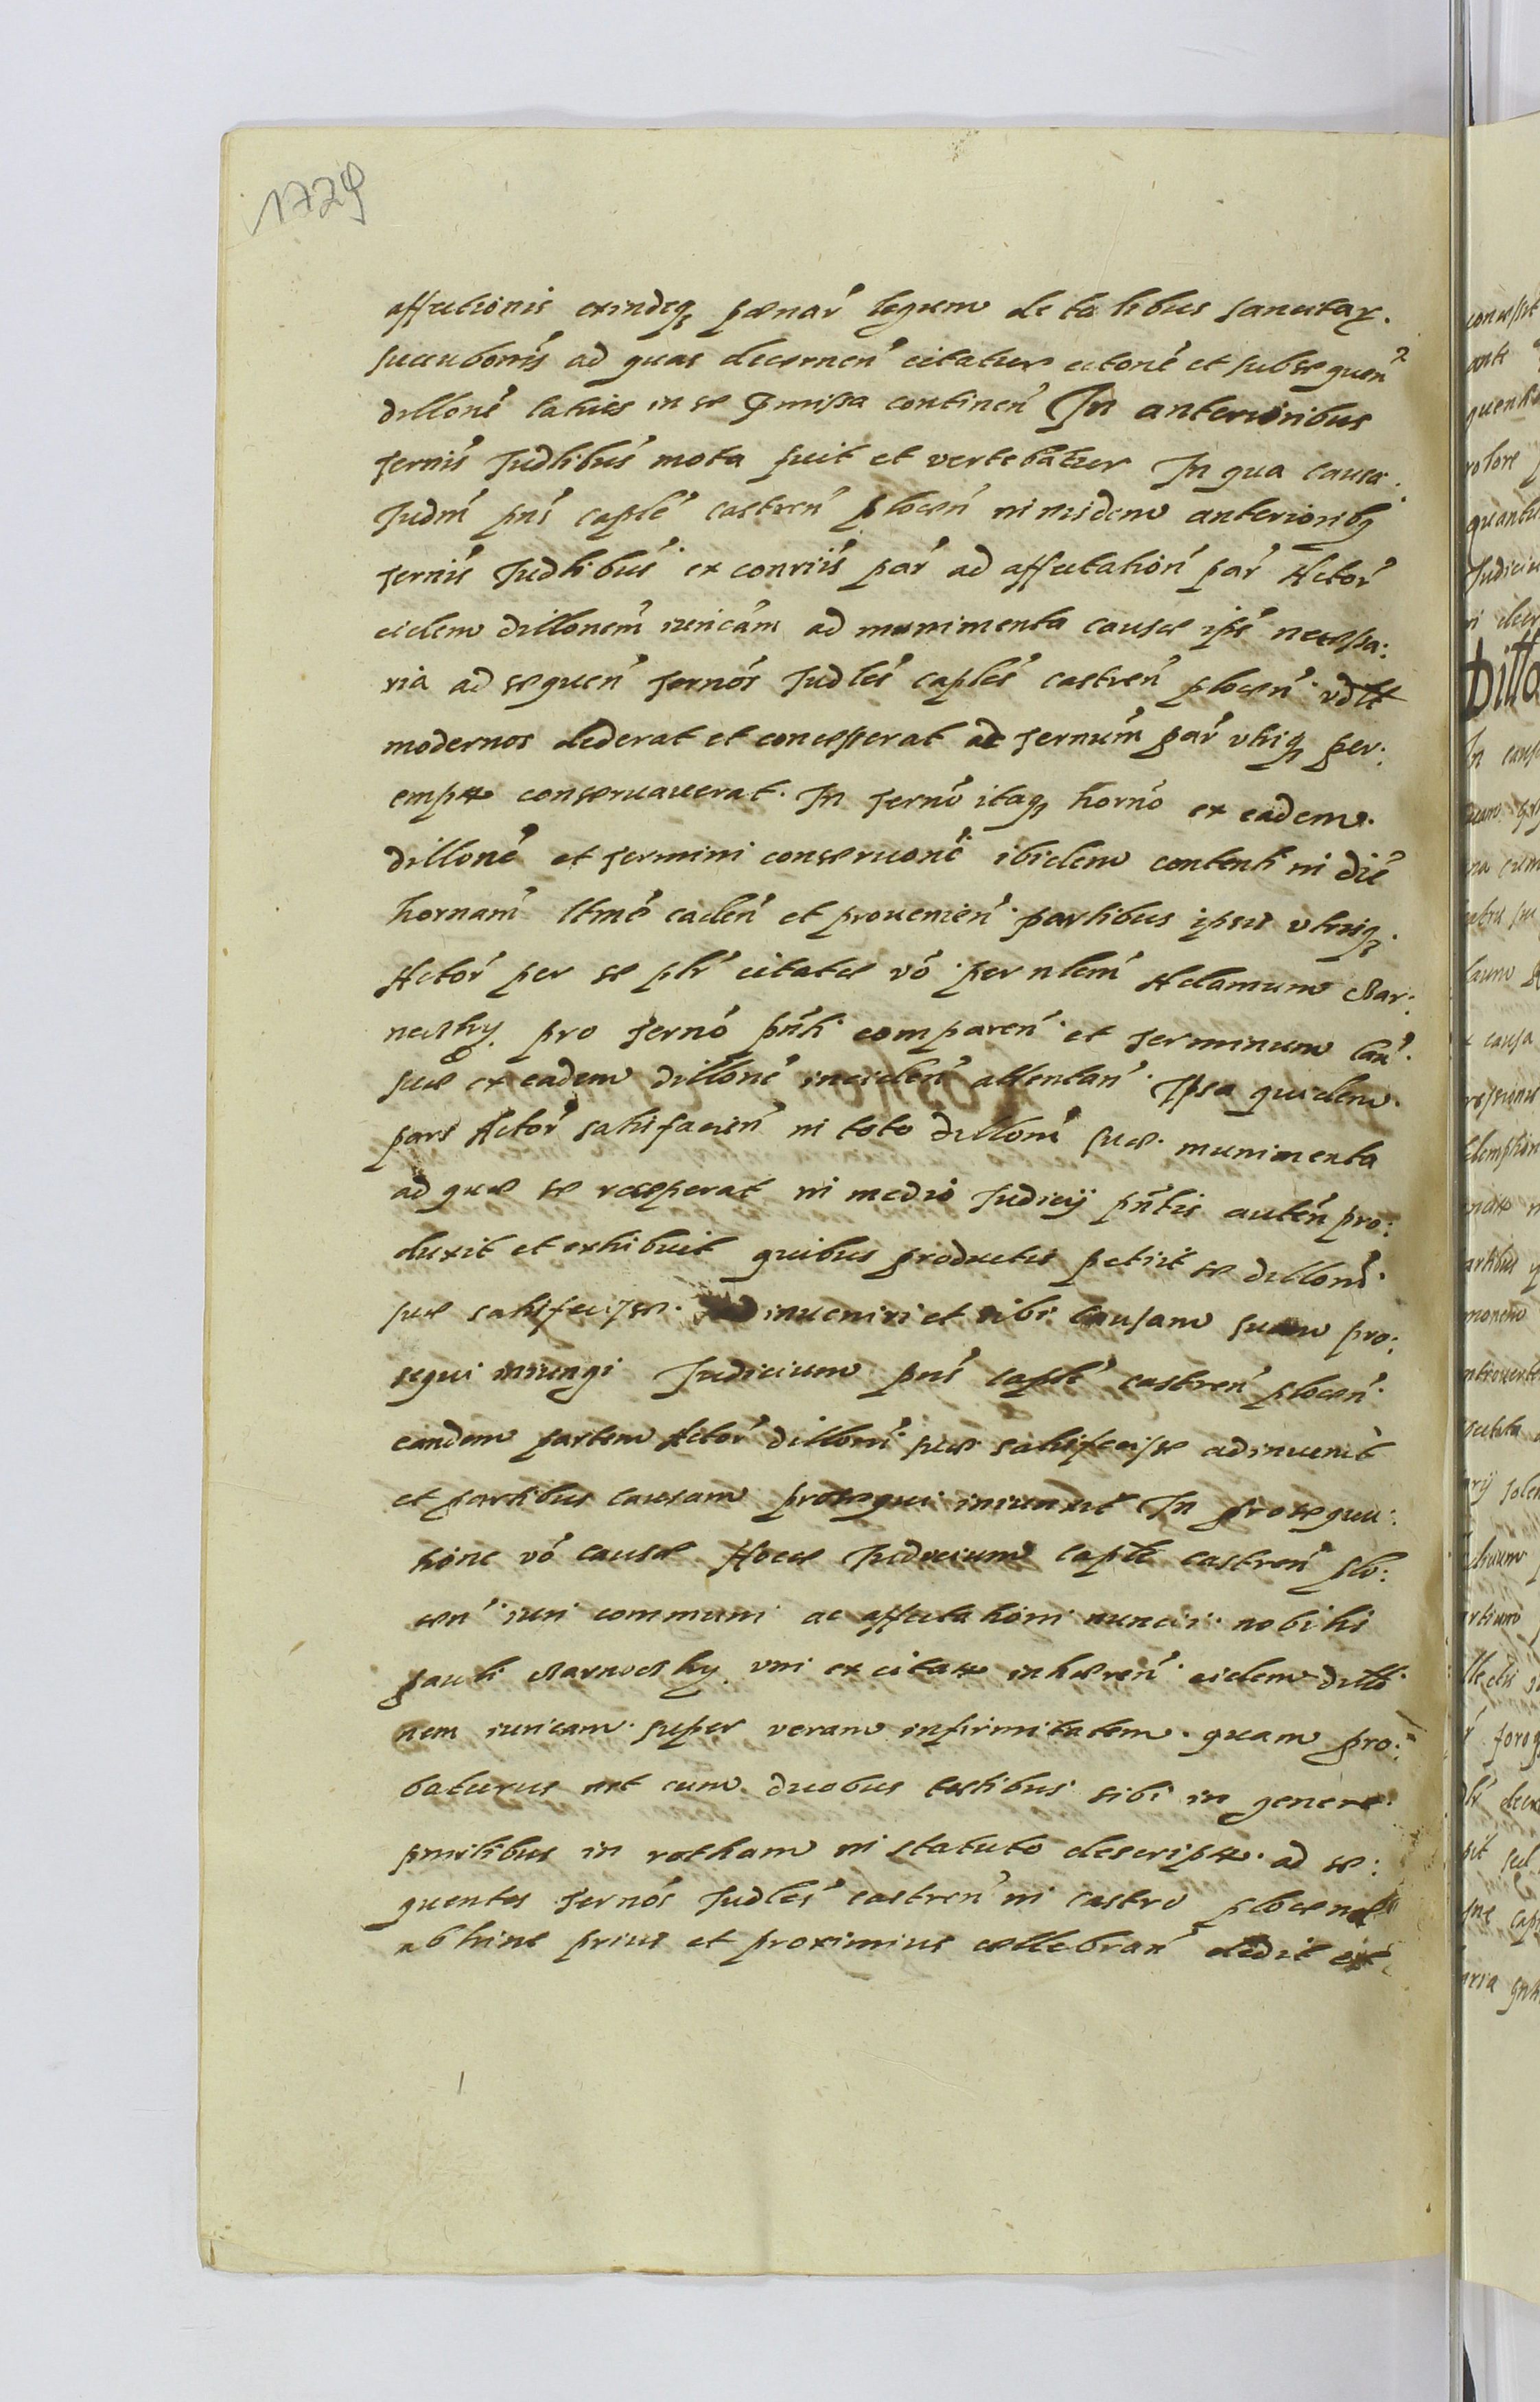 1729
affectionis exindeq pœnar legum de talibus sancitar.
succubonis ad quas decernen citatur citone et subsequen
dillone latius in se præmissa continen In anterioribus
ternis Judlibus mota fuit et vertebatur In qua causa
Judm pns caple castren plocen in eisdem anteriorib
ternis Judlibus ex conriis par ad affectation par Actor
eidem dillonem iuricam ad munimenta causæ ipse necessa:
ria ad sequen ternos Judles caples castren plocen vdlt
modernos dederat et concesserat ac ternum par vtriq per:
emptæ conseruauerat. In terno itaq horno ex eadem
dillone et termini conseruone ibidem contenti in die
hornam ltme caden et prouenien partibus ipsis vtrisq
Actor per se plr citatæ vo per nlem Adamum Bar:
nczky pro terno pnti comparen et terminum cau:
suæ ex eadem dillone inciden attentan Ipsa quidem
pars Actor satisfacien in toto dilloni suæ munimenta
ad quæ se receperat in medio Judicij pntis auten pro:
duxit et exhibuit quibus productis petiit se dilloni
suæ satisfecisse inueniri et sibi causam suam pro:
sequi iniungi Judicium pns caple castren plocen
eandem partem Actor dilloni suæ satisfecisse adinuenit
et partibus causam prosequi iniunxit In prosequu:
tione vo causæ Hocce Judicium caple castren plo:
cen iuri communi ac affectationi nuncii nobilis
pauli Barnczky vni ex citatæ inhæren eidem dillo
nem iuricam super veram infirmitatem quam pro:
baturus est cum duobus testibus sibi in genere
similibus in rotham in statuto descriptæ ad se:
quentes ternos Judles castren in castro plocen
abhinc prius et proximius cellebran dedit et